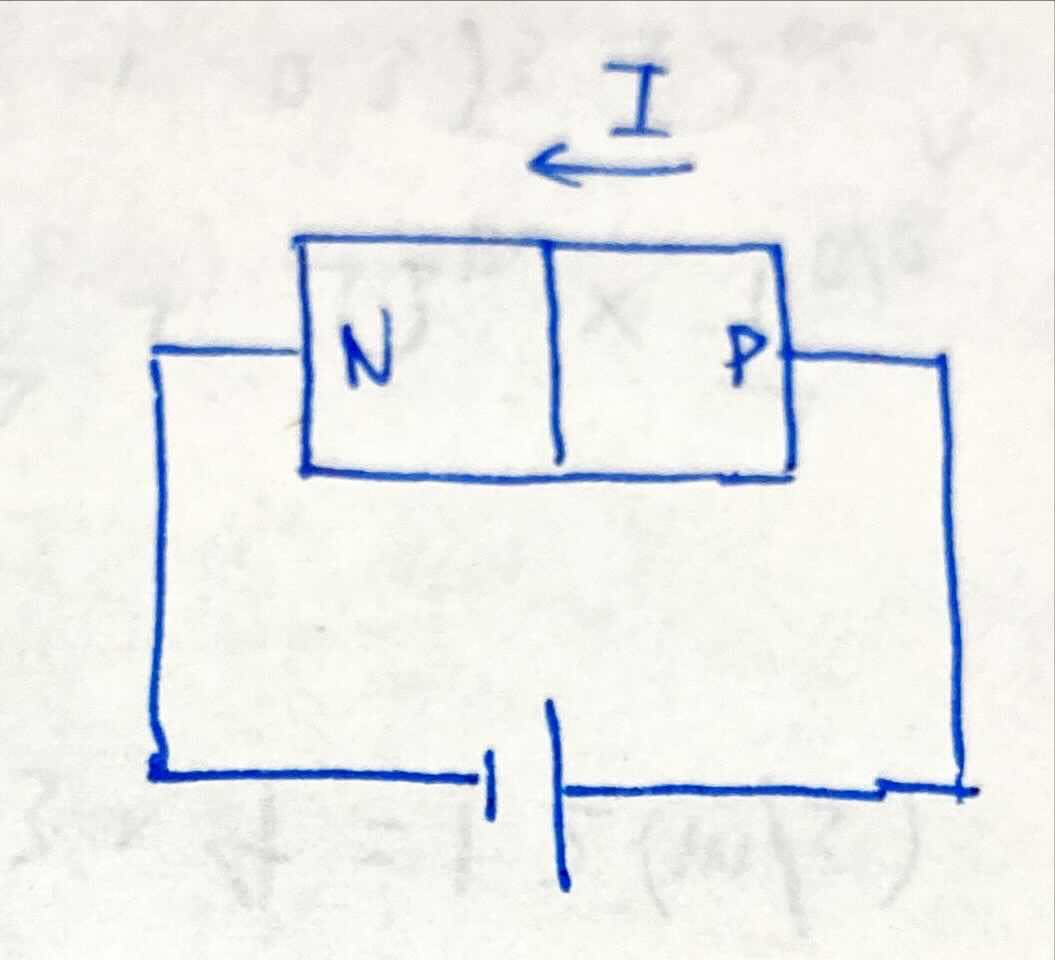 I
N P